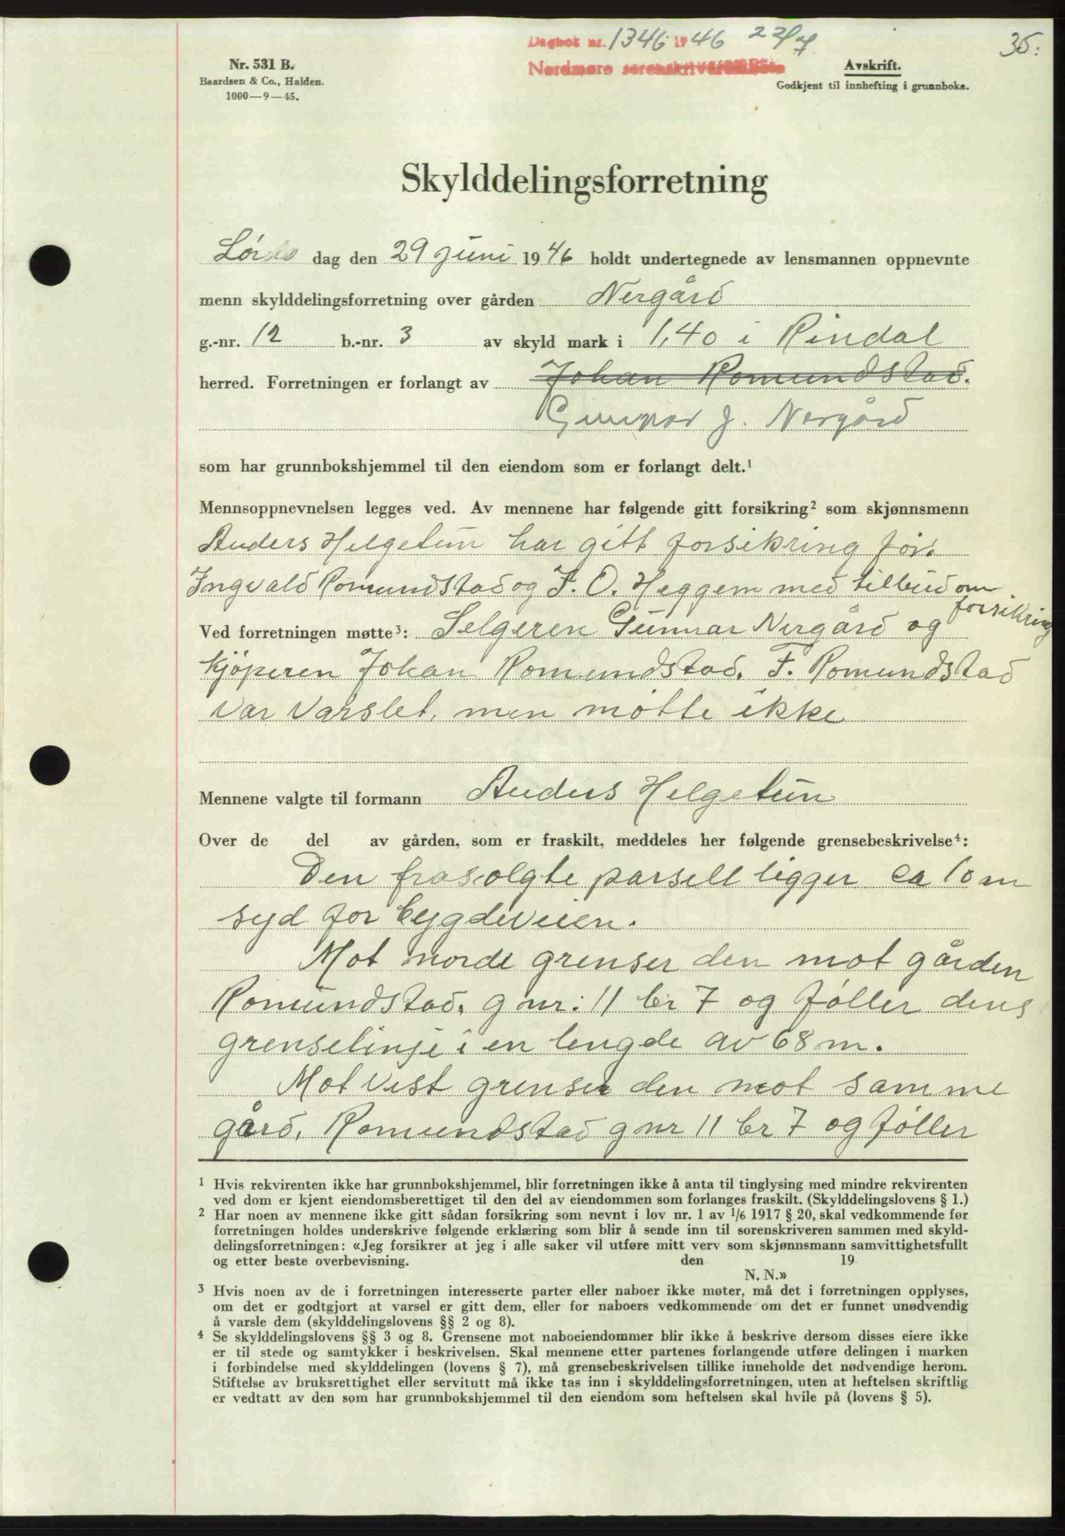 Dagbok nr. 1346 1946 22/7
35.
Nordmøre sorenskriverembete
Nr. 531 B.
Baardsen & Co., Halden.
1000—9—45.
Avskrift.
Godkjent til innhefting i grunnboka.
Skylddelingsforretning
Lørdag den 29 juni 1946 holdt undertegnede av lensmannen oppnevnte
menn skylddelingsforretning over gården Nergård
g.-nr. 12 b.-nr. 3 av skyld mark i 1,40 i Rindal
herred. Forretningen er forlangt av Johan Romundstad.
Gunnar J. Nergård
som har grunnbokshjemmel til den eiendom som er forlangt delt.¹
Mennsoppnevnelsen legges ved. Av mennene har følgende gitt forsikring² som skjønnsmenn
Anders Helgetun har gitt forsikring før.
Ingvald Romundstad og F. O. Heggem med tilbud om
forsikring
Ved forretningen møtte³: Selgeren Gunnar Nergård og
kjöperen Johan Romundstad. F. Romundstad
var varslet, men møtte ikke
Mennene valgte til formann Anders Helgetun
Over de del av gården, som er fraskilt, meddeles her følgende grensebeskrivelse⁴:
Den frasolgte parsell ligger ca 10 m
syd for bygdeveien.
Mot norde grenser den mot gården
Romundstad. g nr: 11 br 7 og føller dens
grenselinje i en lengde av 68 m.
Mot vest grenser den mot samme
gård, Romundstad g nr 11 br 7 og føller
¹ Hvis rekvirenten ikke har grunnbokshjemmel, blir forretningen ikke å anta til tinglysing med mindre rekvirenten
ved dom er kjent eiendomsberettiget til den del av eiendommen som forlanges fraskilt. (Skylddelingslovens § 1.)
² Har noen av mennene ikke gitt sådan forsikring som nevnt i lov nr. 1 av 1/6 1917 § 20, skal vedkommende før
forretningen holdes underskrive følgende erklæring som blir å sende inn til sorenskriveren sammen med skyld-
delingsforretningen: «Jeg forsikrer at jeg i alle saker vil utføre mitt verv som skjønnsmann samvittighetsfullt
og etter beste overbevisning. den 19
N. N.»
³ Hvis noen av de i forretningen interesserte parter eller naboer ikke møter, må det i forretningen opplyses,
om det er godtgjort at varsel er gitt dem, eller for naboers vedkommende om det er funnet unødvendig
å varsle dem (skylddelingslovens §§ 2 og 8).
⁴ Se skylddelingslovens §§ 3 og 8. Grensene mot naboeiendommer blir ikke å beskrive dersom disses eiere ikke
er til stede og samtykker i beskrivelsen. Skal mennene etter partenes forlangende utføre delingen i marken
i forbindelse med skylddelingen (lovens § 7), må grensebeskrivelsen tillike inneholde det nødvendige herom.
Stiftelse av bruksrettighet eller servitutt må ikke tas inn i skylddelingsforretningen, uten at heftelsen skriftlig
er vedtatt av den som har grunnbokshjemmel til den eiendom som heftelsen skal hvile på (lovens § 5).